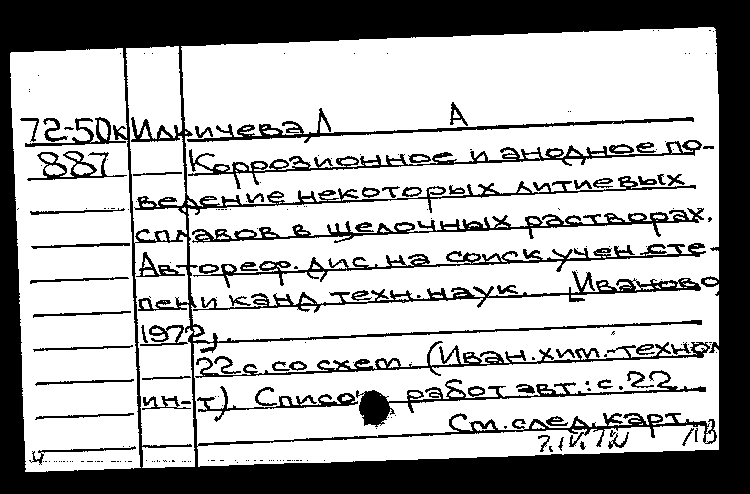 72-50к Ильичева, Л А
887 Коррозионное и анодное по-
ведение некоторых литиевых
сплавов в щелочных растворах.
Автореф. дис. на соиск. учен. сте-
пени канд. техн. наук. [Иваново,
1972].
22 с. со схем. (Иван. хим.-технол
ин-т). Список работ авт.: с. 22.
См. след. карт.